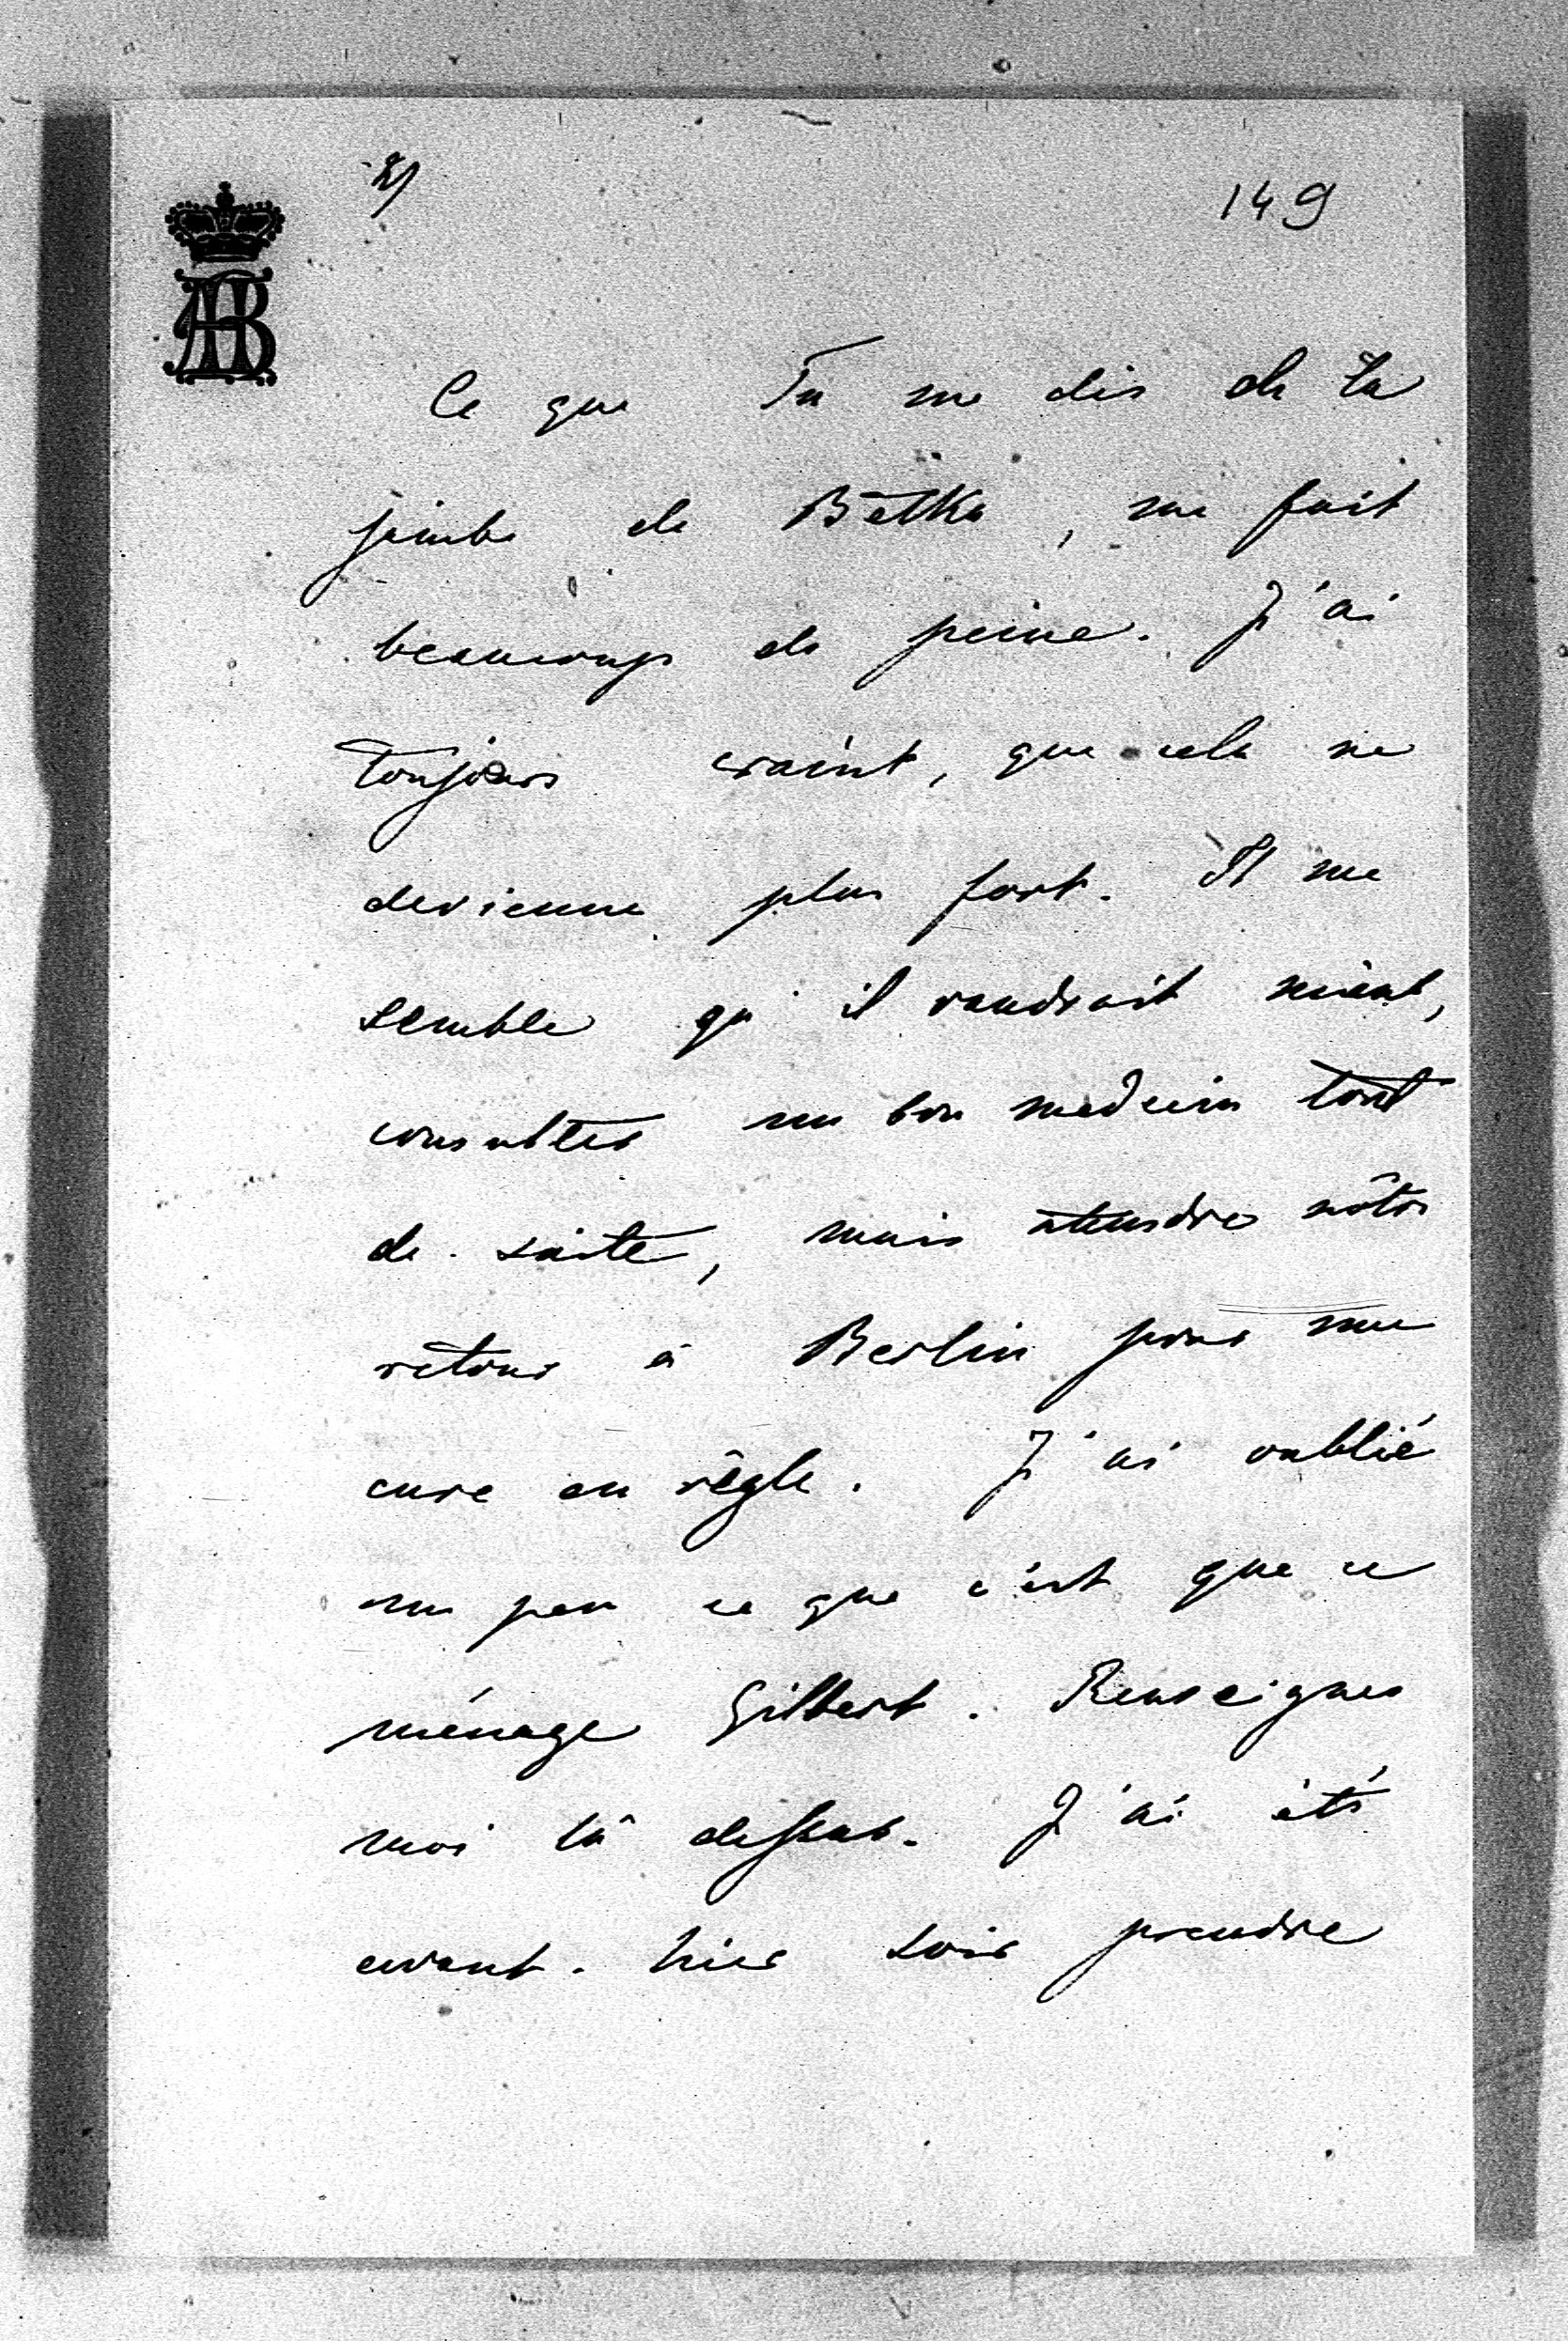 2)
149
AB
Ce que Tu me dis de ta
jambe de Betka, me fait
beaucoup de peine. J'ai
toujours craint, que cela ne
devienne plus fort. Il me
semble qu'il vaudrait mieux,
consulter un bon medecin tout
de suite, mais attendre nôtre
retour à Berlin pour une
cure en règle. J'ai oublié
un peu ce que c'est que ce
ménage Gilbert. Renseignes
moi là dessus. J'ai été
avant-hier soir prendre